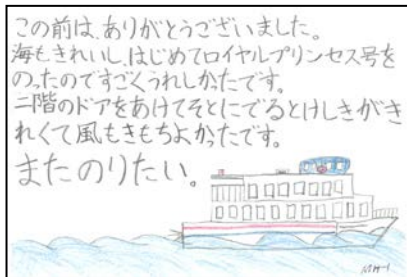 この前は、ありがとうございました。
海もきれいし、はじめてロイヤルプリンセス号を
のったのですごくうれしかたです。
二階のドアをあけてそとにでるとけしきがき
れくて風もきもちよかったです。
またのりたい。
MH-1